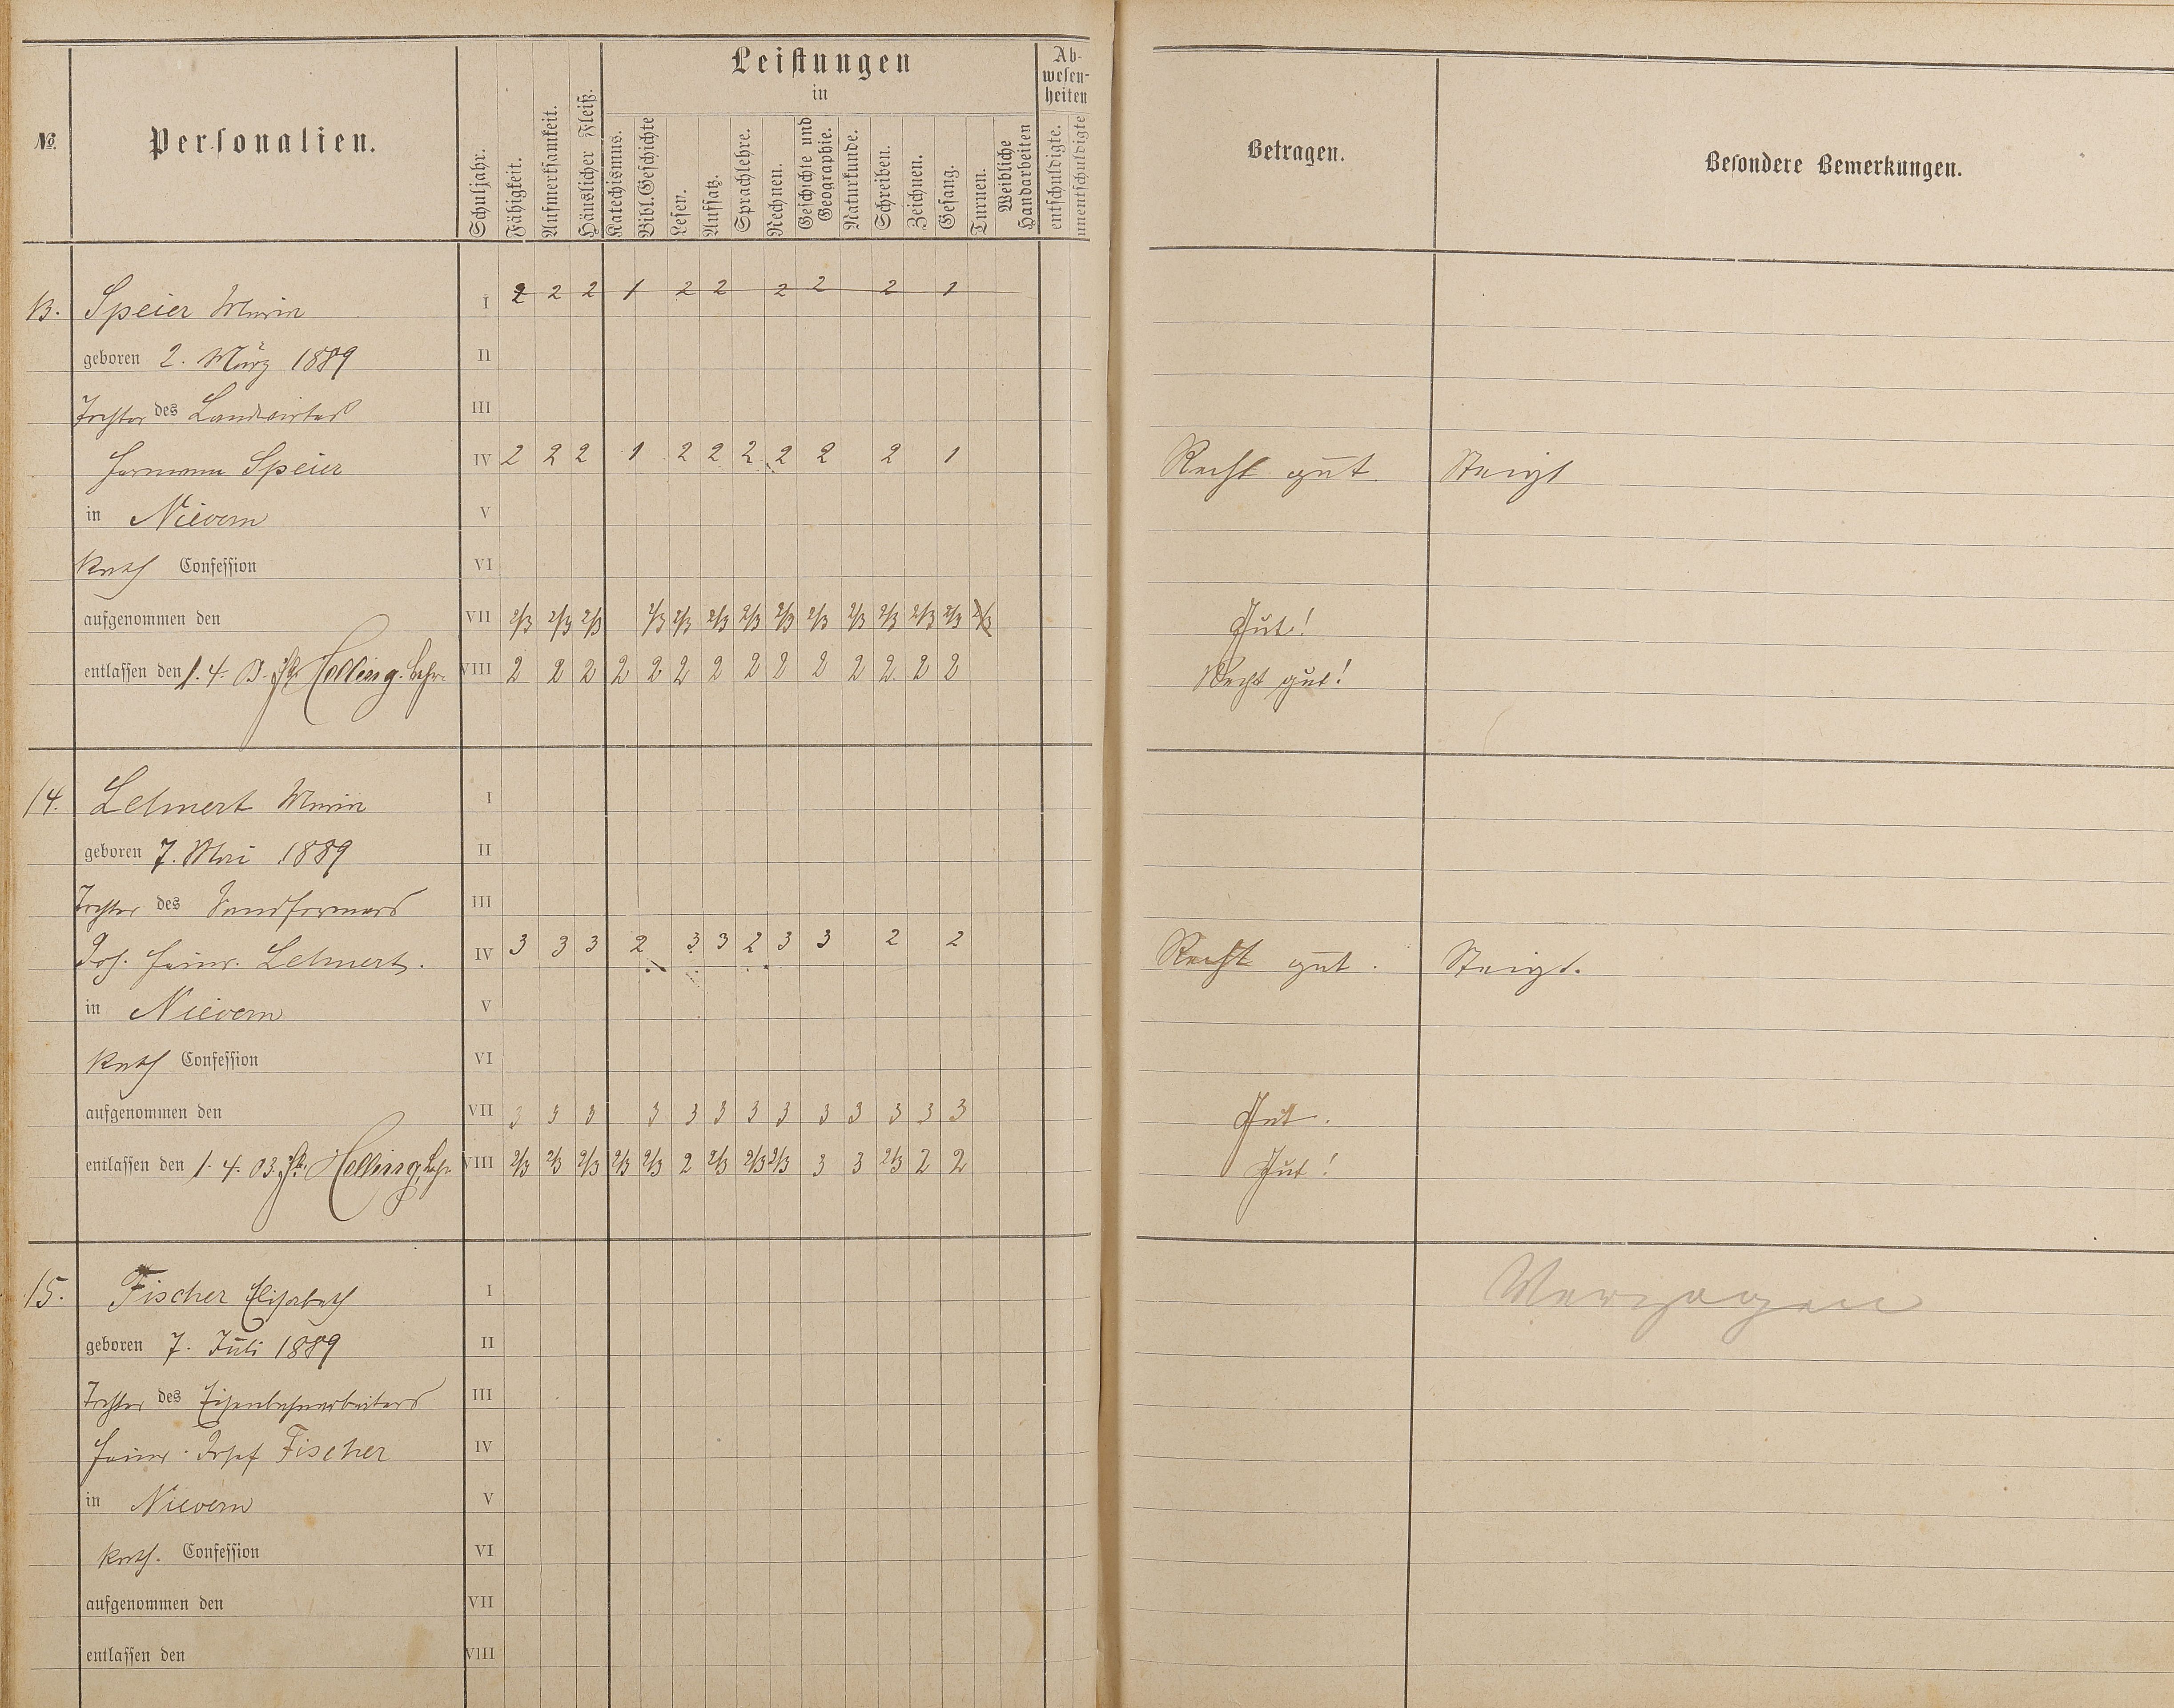 №.
Personalien.
Schuljahr.
Fähigkeit.
Aufmerksamkeit.
Häuslicher Fleiß.
Leistungen
in
Katechismus.
Bibl. Geschichte
Lesen.
Aufsatz.
Sprachlehre.
Rechnen.
Geschichte und Geographie.
Naturkunde.
Schreiben.
Zeichnen.
Gesang.
Turnen.
Weibliche Handarbeiten
Ab-
wesen-
heiten
entschuldigte.
unentschuldigte
Betragen.
Besondere Bemerkungen.
13. Speier Maria I 2 2 2 1 2 2 2 2 2 1
geboren 2. März 1889 II
Tochter des Landwirtes III
Hermann Speier IV 2 2 2 1 2 2 2 2 2 2 1 Recht gut. Steigt
in Nievern V
Kath Confession VI
aufgenommen den VII 2/3 2/3 2/3 2/3 2/3 2/3 2/3 2/3 2/3 2/3 2/3 2/3 2/3 2/3 Gut!
entlassen den 1. 4. 03. Helling. Lehr. VIII 2 2 2 2 2 2 2 2 2 2 2 2 2 2 Recht gut!
14. Lehnert Maria I
geboren 7. Mai 1889 II
Tochter des Sandformers III
Joh. Heinr. Lehnert. IV 3 3 3 2 3 3 2 3 3 2 2 Recht gut. Steigt.
in Nievern V
Kath Confession VI
aufgenommen den VII 3 3 3 3 3 3 3 3 3 3 3 3 3 Gut.
entlassen den 1. 4. 03. Helling, Lehr. VIII 2/3 2/3 2/3 2/3 2/3 2 2/3 2/3 2/3 3 3 2/3 2 2 Gut!
15. Fischer Elisabeth I Verzogen
geboren 7. Juli 1889 II
Tochter des Eisenbahnarbeiters III
Heinr. Josef Fischer IV
in Nievern V
Kath. Confession VI
aufgenommen den VII
entlassen den VIII